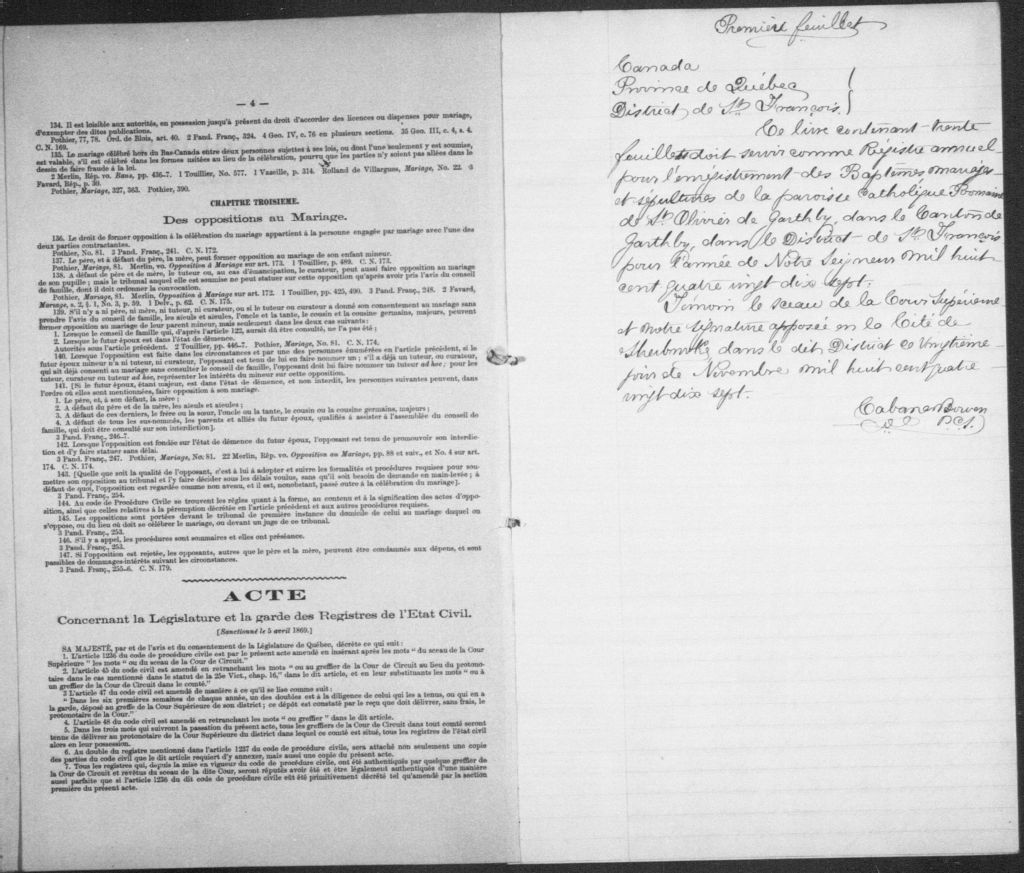 — 4 —
134. Il est loisible aux autorités, en possession jusqu'à present du droit d'accorder des licences ou dispenses pour mariage,
d'exempter des dites publications.
Pothier, 77, 78. Ord. de Blois, art. 40. 2 Pand. Franç., 324. 4 Geo. IV, c. 76 en plusieurs sections. 35 Geo. III, c. 4, s. 4.
C. N. 169.
135. Le mariage célébré hors du Bas-Canada entre deux personnes sujettes à ses lois, ou dont l'une seulement y est soumise,
est valable, s'il est célébré dans les formes usitées au lieu de la célébration, pourvu que les parties n'y soient pas allées dans le
dessein de faire fraude à la loi.
2 Merlin, Rép. vo. Bans, pp. 436-7. 1 Touillier, No. 577. 1 Vazeille, p. 314. Rolland de Villargues, Mariage, No. 22.
Favard, Rép., p. 30.
Pothier, Mariage, 327, 363. Pothier, 390.
CHAPITRE TROISIEME.
Des oppositions au Mariage.
136. Le droit de former opposition à la célébration du mariage appartient à la personne engagée par mariage avec l'une des
deux parties contractantes.
Pothier, No. 81. 3 Pand. Franç., 241. C. N. 172.
137. Le père, et à défaut du père, la mère, peut former opposition au mariage de son enfant mineur.
Pothier, Mariage, 81. Merlin, vo. Opposition à Mariage sur art. 173. 1 Touillier, p. 489. C. N. 173.
138. A défaut de père et de mère, le tuteur ou, au cas d'émancipation, le curateur, peut aussi faire opposition au mariage
de son pupille; mais le tribunal auquel elle est soumise ne peut statuer sur cette opposition qu'après avoir pris l'avis du conseil
de famille, dont il doit ordonner la convocation.
Pothier, Mariage, 81. Merlin, Opposition à Mariage sur art. 172. 1 Touillier, pp. 425, 490. 3 Pand. Franç., 248. 2 Favard,
Mariage, s. 2, § 1, No. 3, p. 59. 1 Delv., p. 62. C. N. 175.
139. S'il n'y a ni père, ni mère, ni tuteur, ni curateur, ou si le tuteur ou curateur a donné son consentement au mariage sans
prendre l'avis du conseil de famille, les aïeuls et aïeules, l'oncle et la tante, le cousin et la cousine germains, majeurs, peuvent
former opposition au mariage de leur parent mineur, mais seulement dans les deux cas suivants:
1. Lorsque le conseil de famille qui, d'après l'article 122, aurait dû être consulté, ne l'a pas été;
2. Lorsque le futur époux est dans l'état de démence.
Autorités sous l'article précédent. 2 Touillier, pp. 446-7. Pothier, Mariage, No. 81. C. N. 174.
140. Lorsque l'opposition est faite dans les circonstances et par une des personnes énumérées en l'article précédent, si le
futur époux mineur n'a ni tuteur, ni curateur, l'opposant est tenu de lui en faire nommer un; s'il a déjà un tuteur, ou curateur,
qui ait déjà consenti au mariage sans consulter le conseil de famille, l'opposant doit lui faire nommer un tuteur ad hoc; pour les
tuteur, curateur ou tuteur ad hoc, représenter les intérêts du mineur sur cette opposition.
141. [Si le futur époux, étant majeur, est dans l'état de démence, et non interdit, les personnes suivantes peuvent, dans
l'ordre où elles sont mentionnées, faire opposition à son mariage.
1. Le père, et, à son défaut, la mère;
2. A défaut du père et de la mère, les aïeuls et aïeules;
3. A défaut de ces derniers, le frère ou la sœur, l'oncle ou la tante, le cousin ou la cousine germains, majeurs;
4. A défaut de tous les sus-nommés, les parents et alliés du futur époux, qualifiés à assister à l'assemblée du conseil de
famille, qui doit être consulté sur son interdiction].
3 Pand. Franç., 246-7.
142. Lorsque l'opposition est fondée sur l'état de démence du futur époux, l'opposant est tenu de promouvoir son interdic-
tion et d'y faire statuer sans délai.
3 Pand. Franç., 247. Pothier, Mariage, No. 81. 22 Merlin, Rép. vo. Opposition au Mariage, pp. 88 et suiv., et No. 4 sur art.
174. C. N. 174.
143. [Quelle que soit la qualité de l'opposant, c'est à lui à adopter et suivre les formalités et procédures requises pour sou-
mettre son opposition au tribunal et l'y faire décider sous les délais voulus, sans qu'il soit besoin de demande en main-levée; à
défaut de quoi, l'opposition est regardée comme non avenu, et il est, nonobstant, passé outre à la célébration du mariage].
3 Pand. Franç., 254.
144. Au code de Procédure Civile se trouvent les règles quant à la forme, au contenu et à la signification des actes d'oppo-
sition, ainsi que celles relatives à la péremption décrétée en l'article précédent et aux autres procédures requises.
145. Les oppositions sont portées devant le tribunal de première instance du domicile de celui au mariage duquel on
s'oppose, ou du lieu où doit se célébrer le mariage, ou devant un juge de ce tribunal.
3 Pand. Franç., 253.
146. S'il y a appel, les procédures sont sommaires et elles ont préséance.
3 Pand. Franç., 253.
147. Si l'opposition est rejetée, les opposants, autres que le père et la mère, peuvent être condamnés aux dépens, et sont
passibles de dommages-intérêts suivant les circonstances.
3 Pand. Franç., 255-6. C. N. 179.
ACTE
Concernant la Législature et la garde des Registres de l'Etat Civil.
[Sanctionné le 5 avril 1869.]
SA MAJESTÉ, par et de l'avis et du consentement de la Législature de Québec, décrète ce qui suit:
1. L'article 1236 du code de procédure civile est par le présent acte amendé en insérant après les mots "du sceau de la Cour
Supérieure" les mots "ou du sceau de la Cour de Circuit."
2. L'article 45 du code civil est amendé en retranchant les mots "ou au greffier de la Cour de Circuit au lieu du protono-
taire dans le cas mentionné dans le statut de la 25e Vict., chap. 16," dans le dit article, et en leur substituant les mots "ou à
un greffier de la Cour de Circuit dans le comté."
3 L'article 47 du code civil est amendé de manière à ce qu'il se lise comme suit:
"Dans les six premières semaines de chaque année, un des doubles est à la diligence de celui qui les a tenus, ou qui en a
la garde, déposé au greffe de la Cour Supérieure de son district; ce dépôt est constaté par le reçu que doit délivrer, sans frais, le
protonotaire de la Cour."
4. L'article 48 du code civil est amendé en retranchant les mots "ou greffier" dans le dit article.
5. Dans les trois mois qui suivront la passation du présent acte, tous les greffiers de la Cour de Circuit dans tout comté seront
tenus de délivrer au protonotaire de la Cour Supérieure du district dans lequel ce comté est situé, tous les registres de l'état civil
alors en leur possession.
6. Au double du registre mentionné dans l'article 1237 du code de procédure civile, sera attaché non seulement une copie
des parties du code civil que le dit article requiert d'y annexer, mais aussi une copie du présent acte.
7. Tous les registres qui, depuis la mise en vigueur du code de procédure civile, ont été authentiqués par quelque greffier de
la Cour de Circuit et revêtus du sceau de la dite Cour, seront réputés avoir été et être légalement authentiqués d'une manière
aussi parfaite que si l'article 1236 du dit code de procédure civile eût été primitivement décrété tel qu'amendé par la section
première du présent acte.
Première feuillet
Canada
Province de Québec
District de St. François.
Ce livre contenant trente
feuillets doit servir comme Régistre annuel
pour l'enrégistrement des Baptêmes mariages
et sépultures de la paroisse Catholique Romaine
de St. Olivier de Garthby, dans le Canton de
Garthby, dans le District de St. François
pour l'année de Notre Seigneur mil huit
cent quatre vingt dix sept.
Témoin le sceau de la Cour Supérieure
et notre signature apposée en la Cité de
Sherbrooke dans le dit District ce vingtième
jour de Novembre mil huit cent quatre
vingt dix sept.
Cabana Bowen
P.C.S.